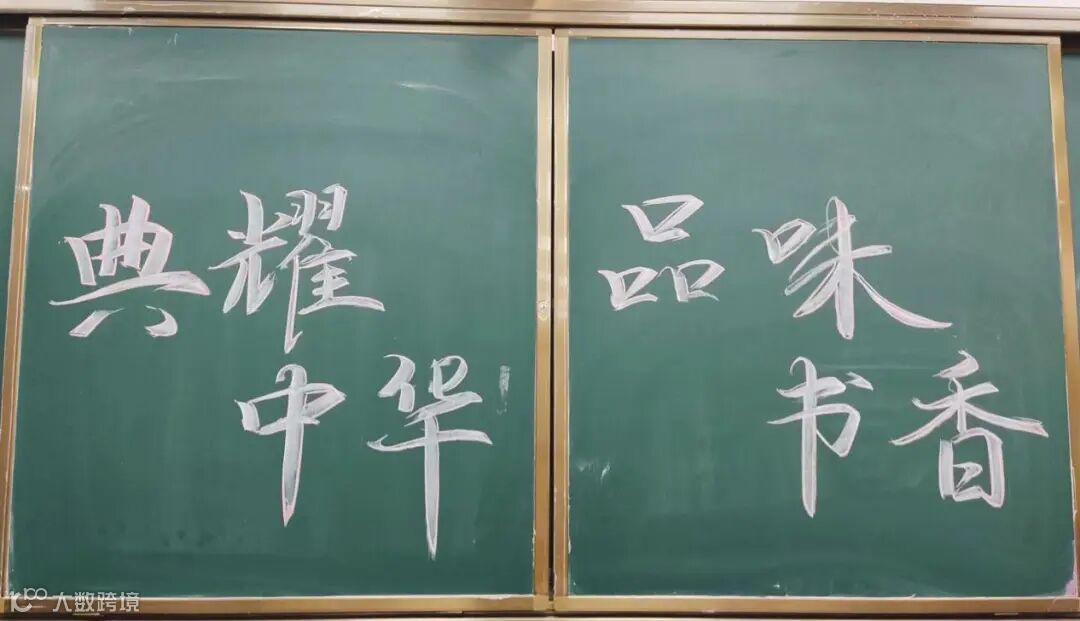 典耀
中华
品味
书香
大数跨境